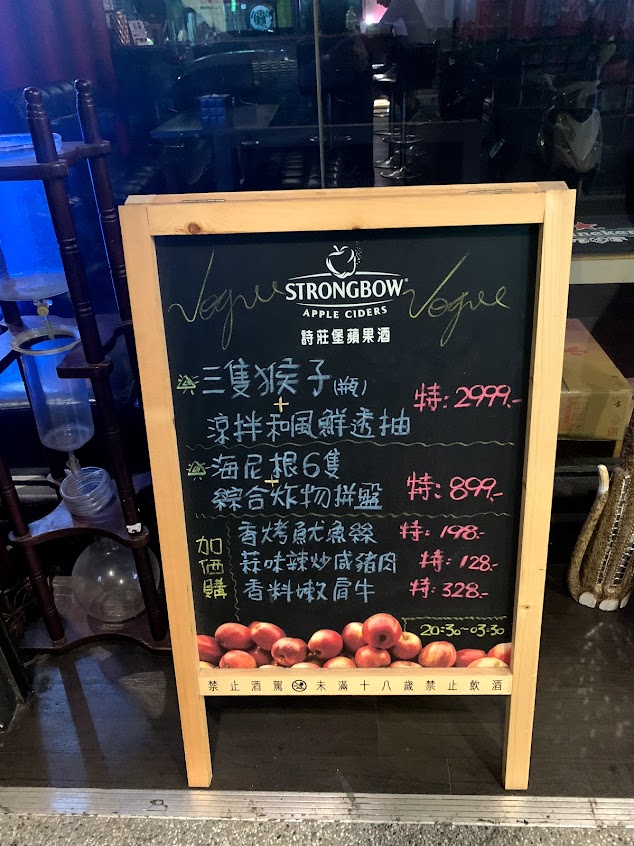 Vogue
STRONGBOW
Vogue
APPLE CIDERS
詩莊堡蘋果酒
三隻猴子(瓶)
+
涼拌和風鮮透抽
特:2999.-
海尼根6隻
+
綜合炸物拼盤
特:899.-
加価購
香烤魷魚絲 特:198.-
蒜味辣炒咸豬肉 特:128.-
香料嫩肩牛 特:328.-
20:30~03:30
禁止酒駕 未滿十八歲禁止飲酒